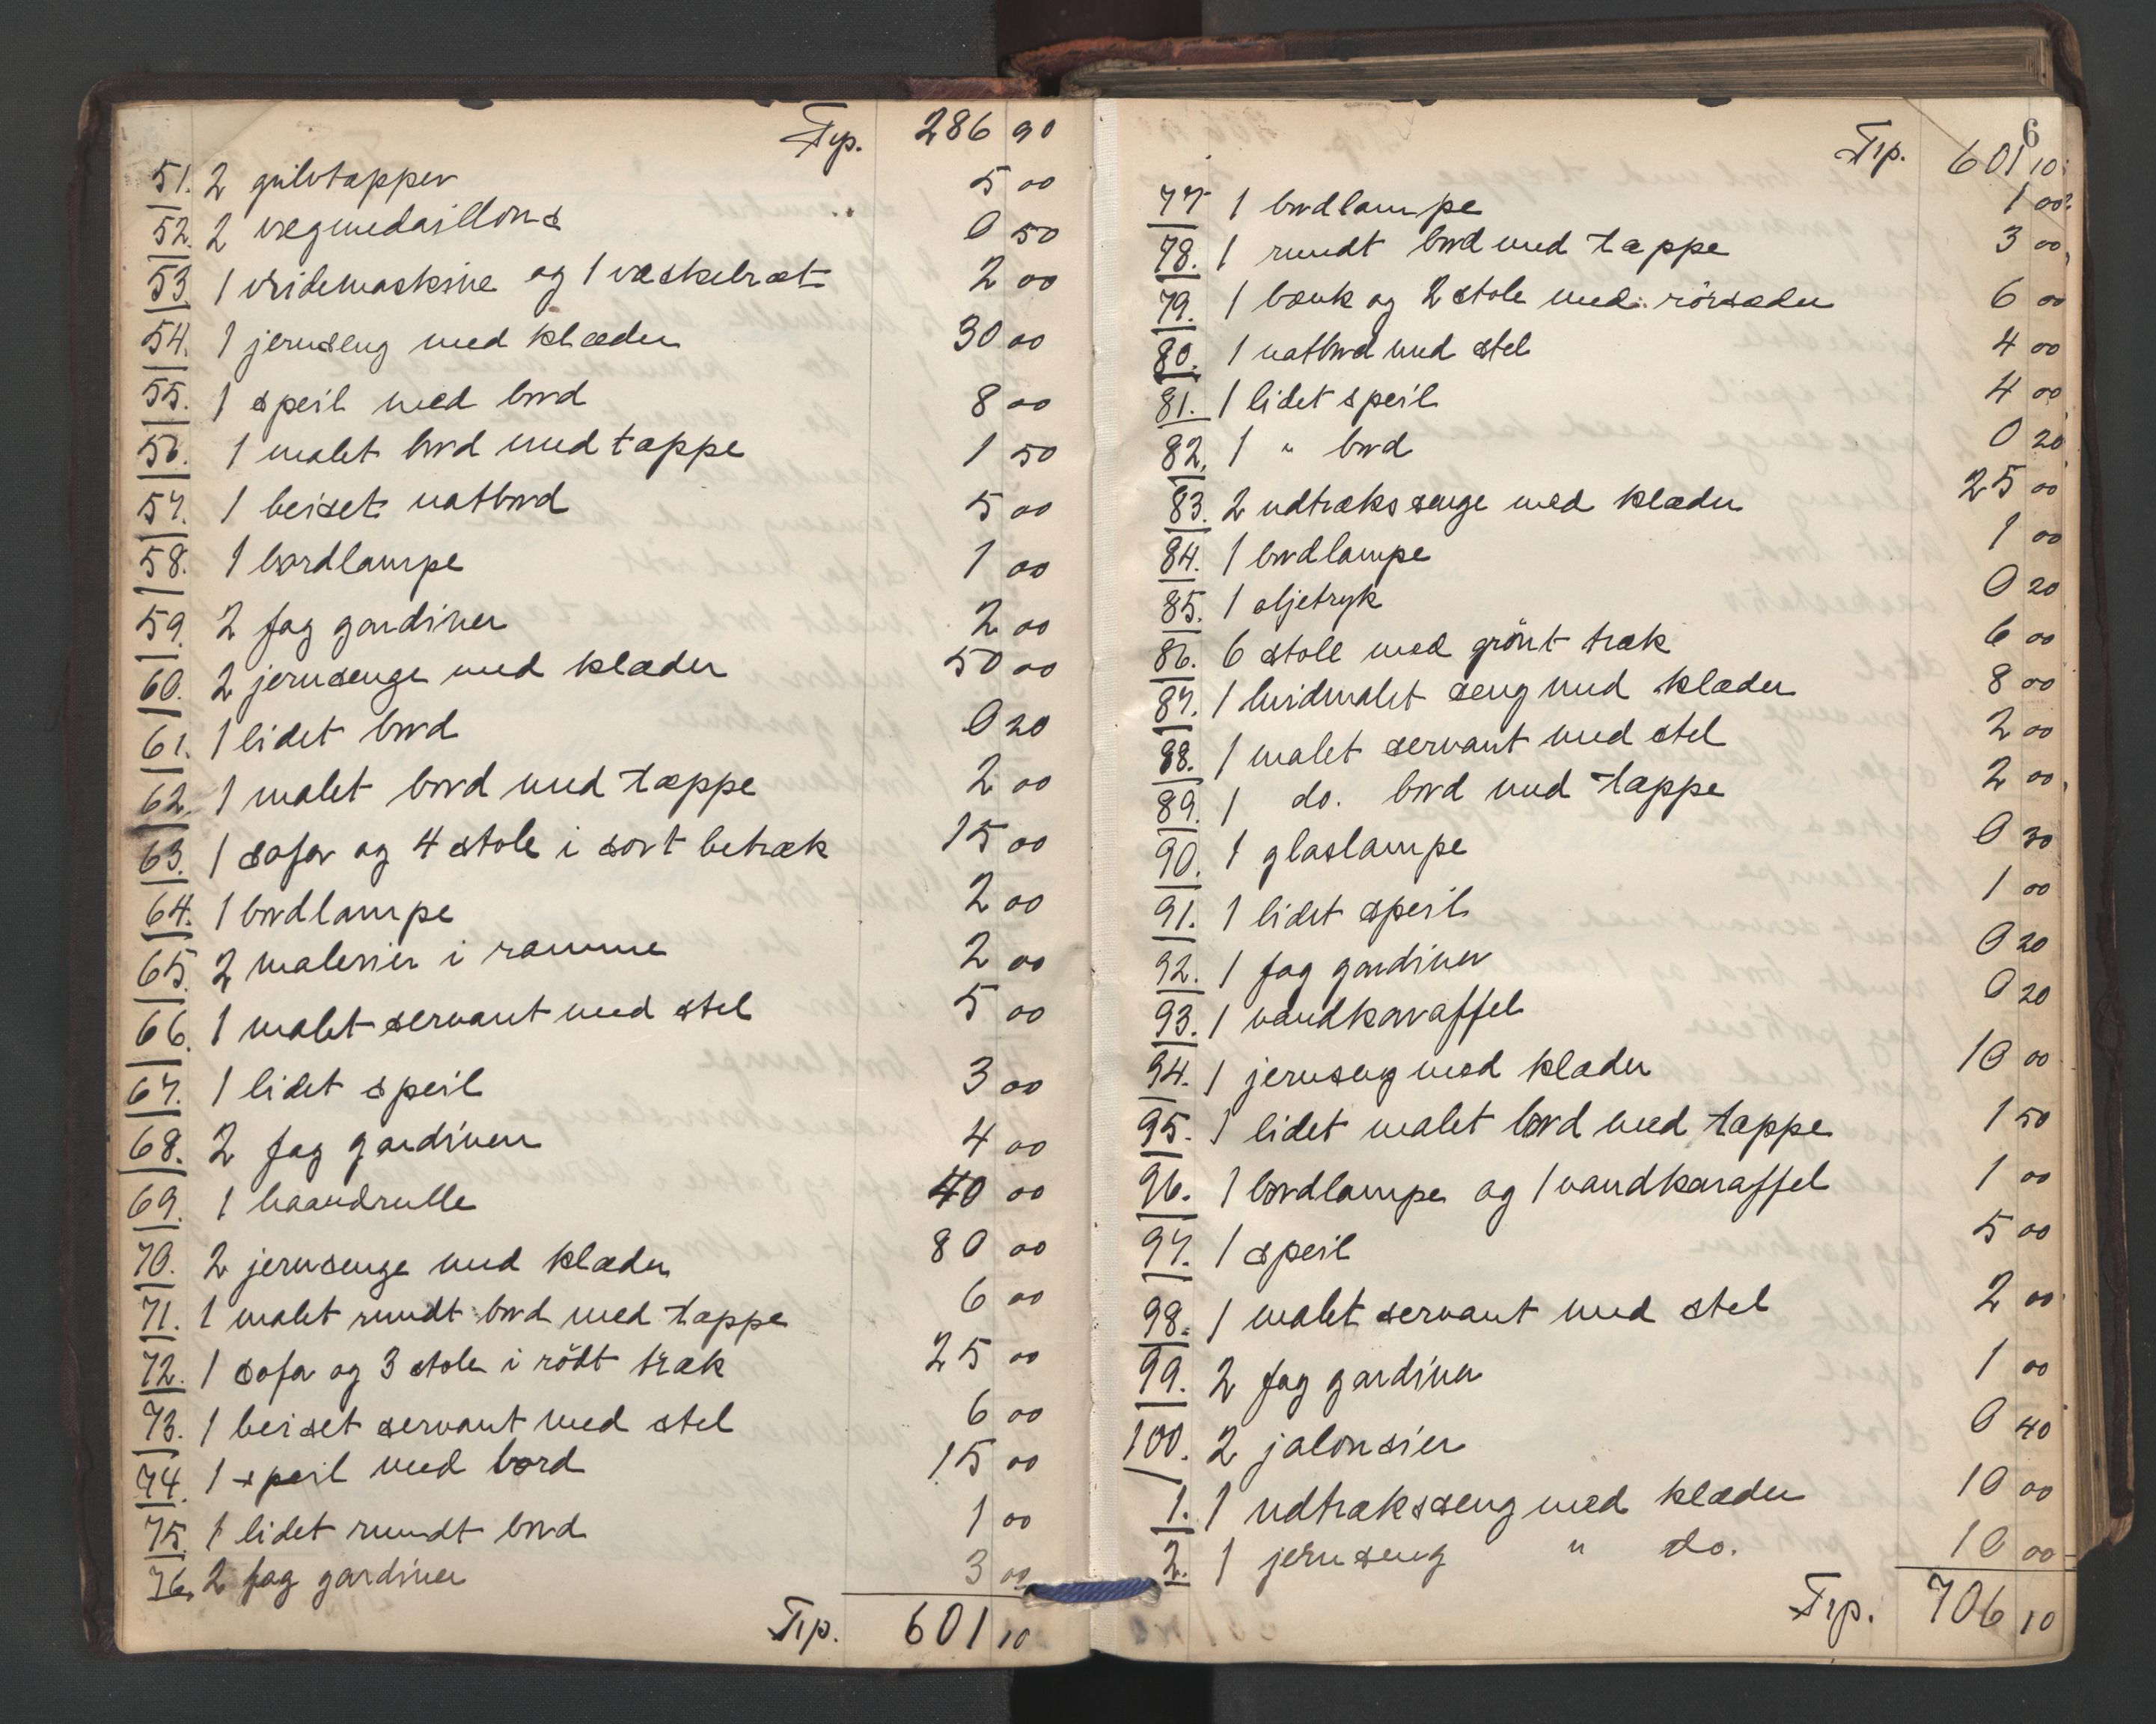 Trp. 286 90
51. 2 gulvtepper 5 00
52. 2 vegmedaillons 0 50
53. 1 vridemaskine og 1 vaskebræt 2 00
54. 1 jernseng med klæder 30 00
55. 1 speil med bord 8 00
56. 1 malet bord med tæppe 1 50
57. 1 beiset natbord 5 00
58. 1 bordlampe 1 00
59. 2 fag gardiner 2 00
60. 2 jernsenge med klæder 50 00
61. 1 lidet bord 0 20
62. 1 malet bord med tæppe 2 00
63. 1 sofa og 4 stole i sort betræk 15 00
64. 1 bordlampe 2 00
65. 2 malerier i ramme 2 00
66. 1 malet servant med stel 5 00
67. 1 lidet speil 3 00
68. 2 fag gardiner 4 00
69. 1 haandrulle 40 00
70. 2 jernsenge med klæder 80 00
71. 1 malet rundt bord med tæppe 6 00
72. 1 sofa og 3 stole i rödt træk 25 00
73. 1 beiset servant med stel 6 00
74. 1 speil med bord 15 00
75. 1 lidet rundt bord 1 00
76. 2 fag gardiner 3 00
Trp. 601 10
6
Trp. 601 10
77. 1 bordlampe 1 00
78. 1 rundt bord med tæppe 3 00
79. 1 bænk og 2 stole med rörsæder 6 00
80. 1 natbord med stel 4 00
81. 1 lidet speil 4 00
82. 1 " bord 0 20
83. 2 udtrækssenge med klæder 25 00
84. 1 bordlampe 1 00
85. 1 oljetryk 0 20
86. 6 stole med grönt træk 6 00
87. 1 hvidmalet seng med klæder 8 00
88. 1 malet servant med stel 2 00
89. 1 do. bord med tæppe 2 00
90. 1 glaslampe 0 30
91. 1 lidet speil 1 00
92. 1 fag gardiner 0 20
93. 1 vandkaraffel 0 20
94. 1 jernseng med klæder 10 00
95. 1 lidet malet bord med tæppe 1 50
96. 1 bordlampe og 1 vandkaraffel 1 00
97. 1 speil 5 00
98. 1 malet servant med stel 2 00
99. 2 fag gardiner 1 00
100. 2 jalousier 0 40
1. 1 udtræksseng med klæder 10 00
2. 1 jernseng " do. 10 00
Trp. 706 10